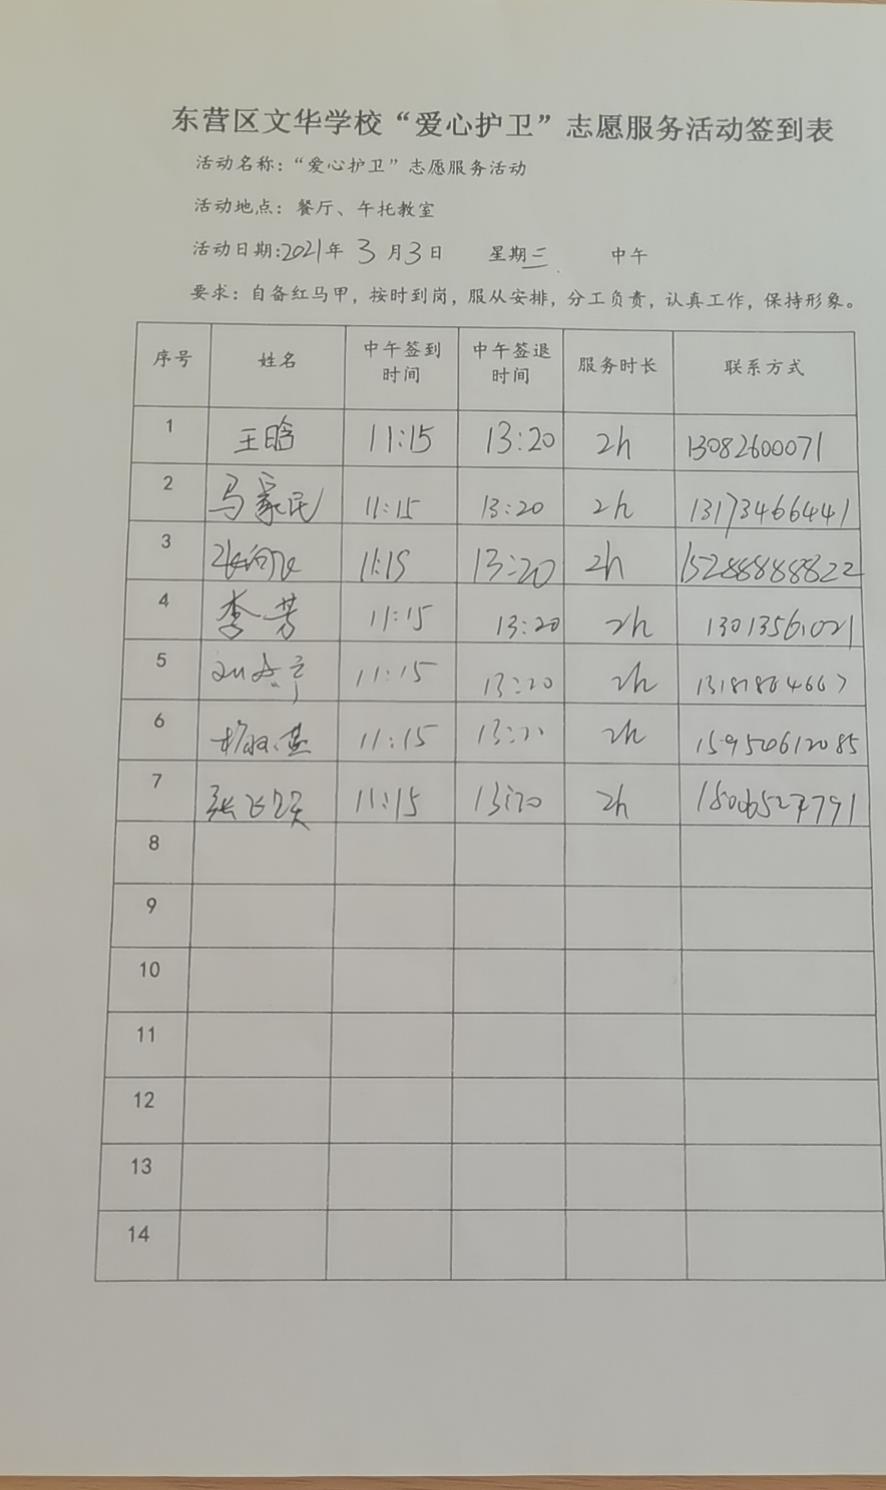 东营区文华学校“爱心护卫”志愿服务活动签到表
活动名称：“爱心护卫”志愿服务活动
活动地点：餐厅、午托教室
活动日期:2021年 3 月3日 星期三 中午
要求：自备红马甲，按时到岗，服从安排，分工负责，认真工作，保持形象。
序号 姓名 中午签到时间 中午签退时间 服务时长 联系方式
1 王晗 11:15 13:20 2h 13082600071
2 马家民 11:15 13:20 2h 13173466441
3 11:15 13:20 2h 15288888822
4 李芳 11:15 13:20 2h 13013561021
5 11:15 13:20 2h
6 11:15 2h 15950612085
7 11:15 13:20 2h 18006527791
8
9
10
11
12
13
14